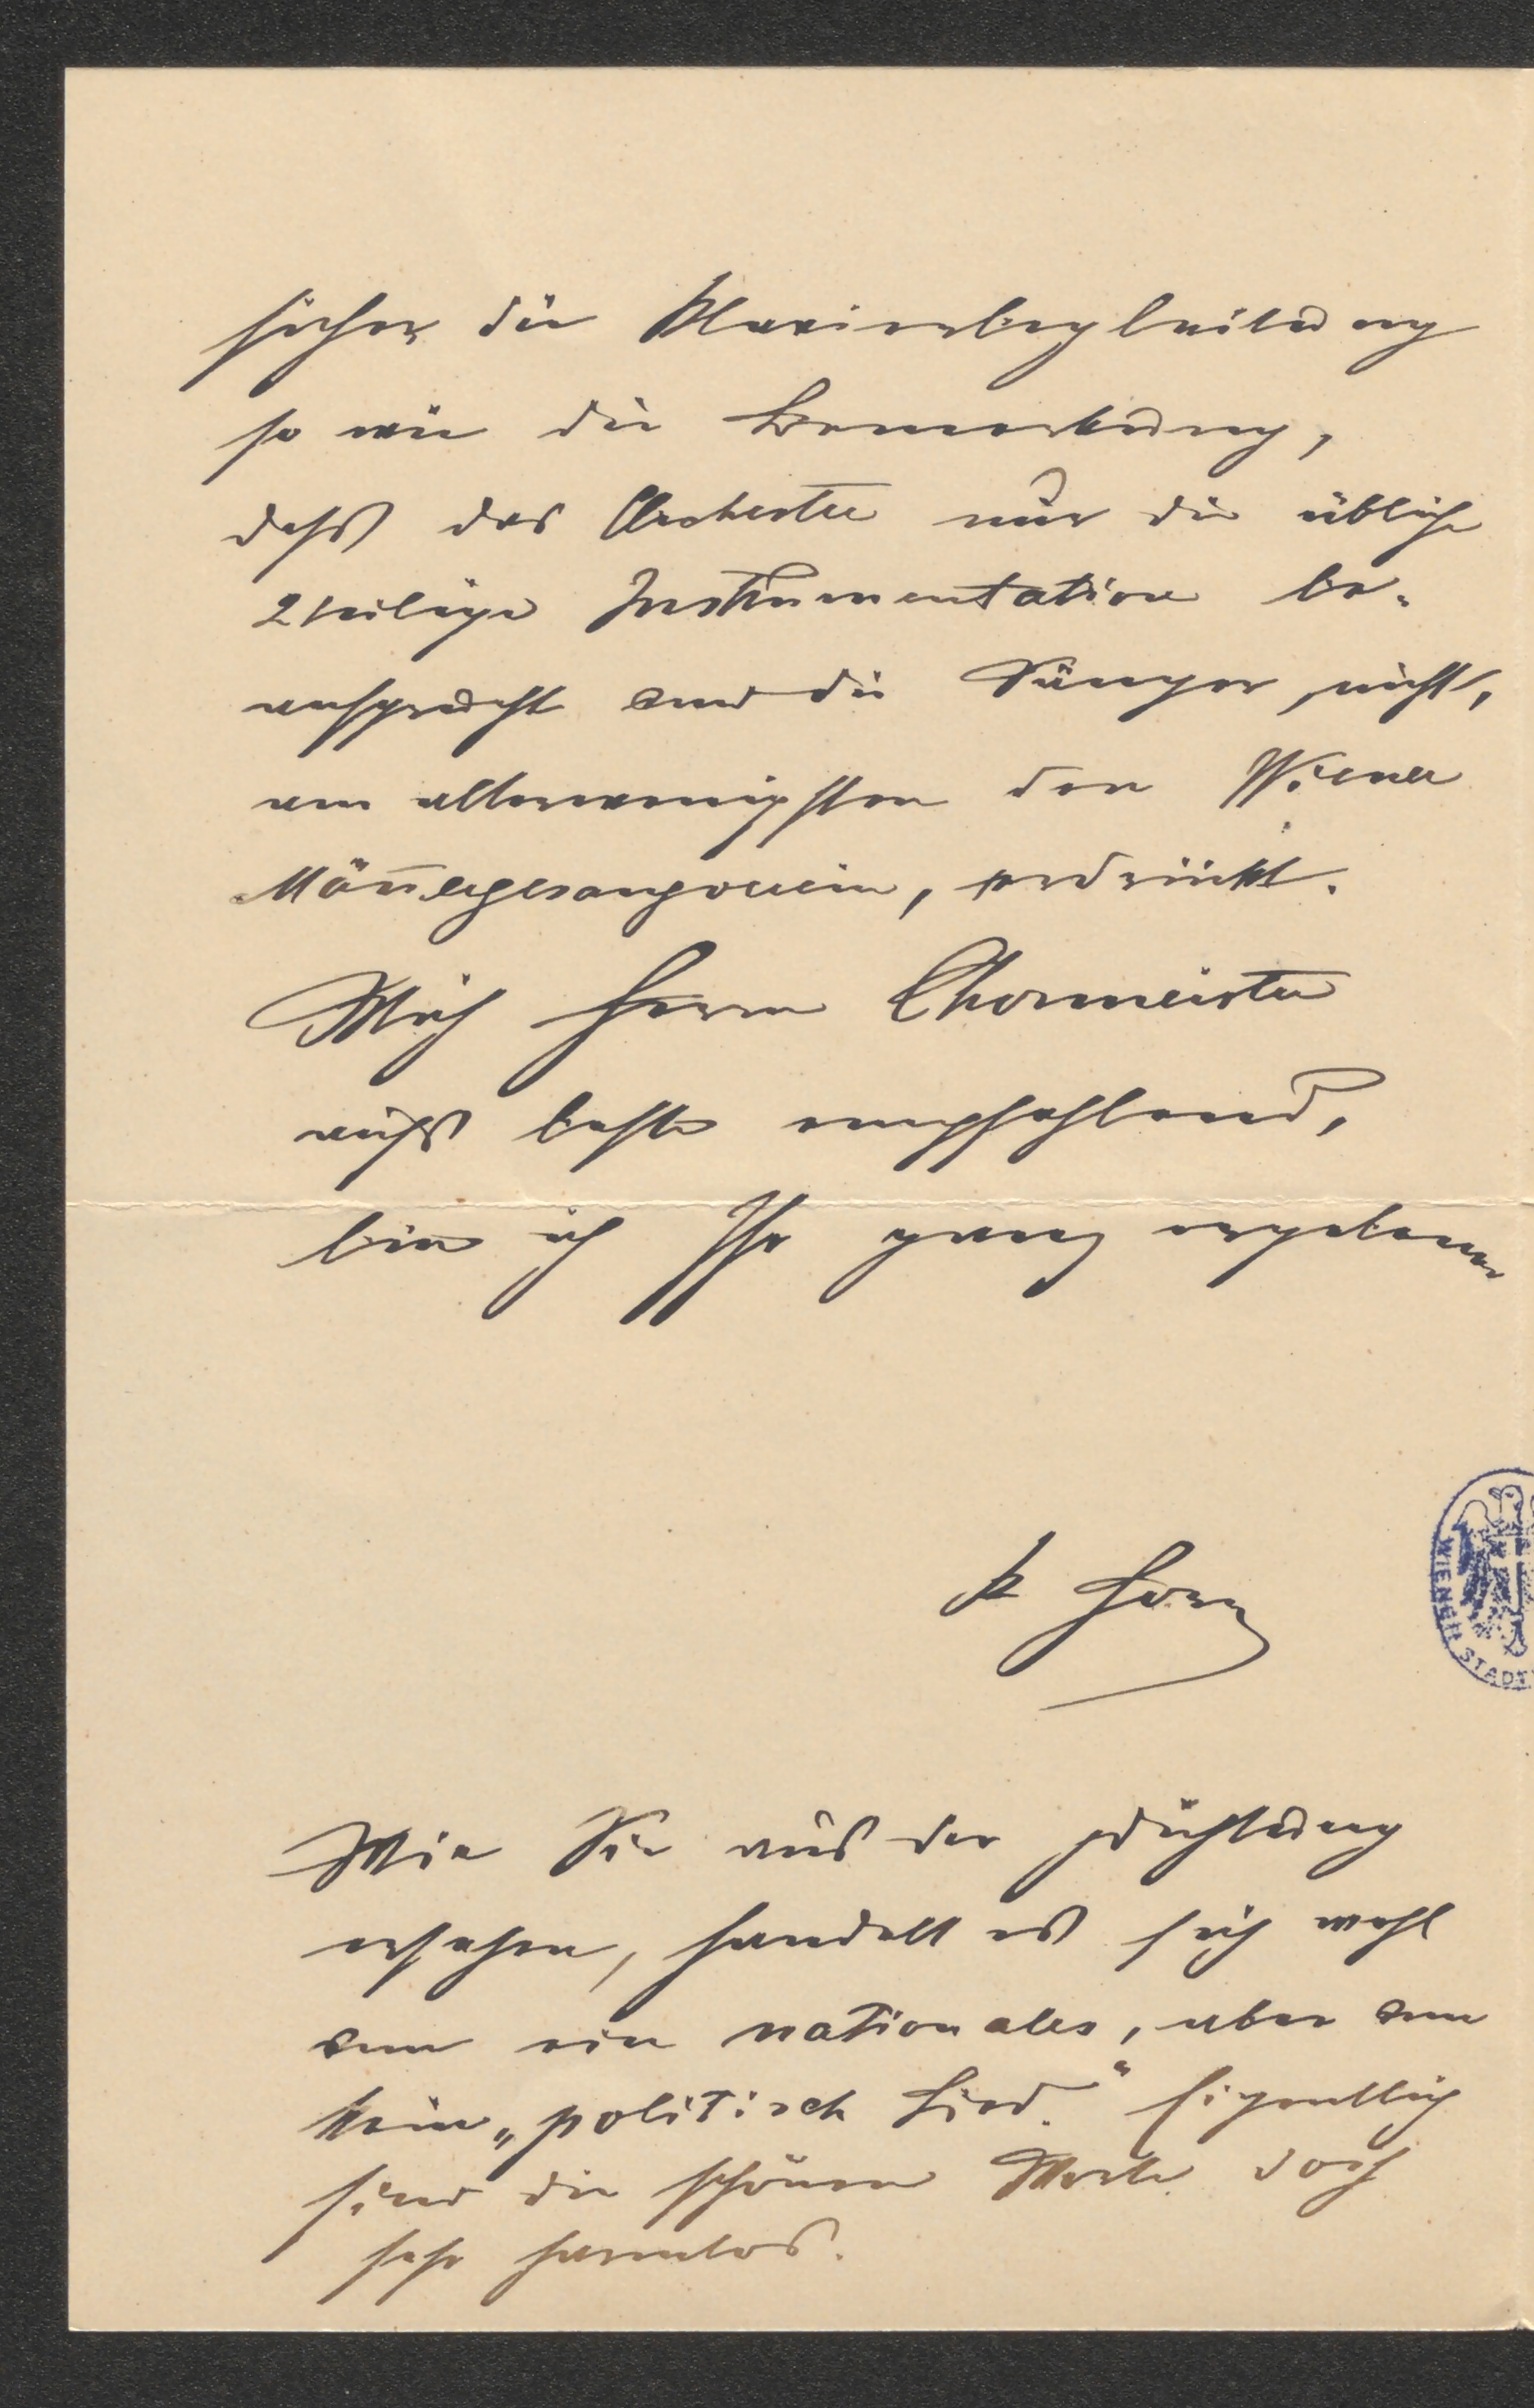 sicher die Klavierbegleitung
so wie die Bemerkung,
daß das Orchester nur die übliche
2teilige Instrumentation be-
ansprucht und die Sänger nicht,
am allerwenigsten den Wiener
Mäñergesangverein, erdrückt.
Mich Herrn Chormeister
aufs beste empfehlend,
bin ich Ihr ganz ergebener
K
WIENER STADT
Wie Sie aus der Dichtung
ersehen, handelt es sich wohl
um ein nationales, aber um
kein „politisch Lied." Eigentlich
sind die schönen Worte doch
sehr harmlos.